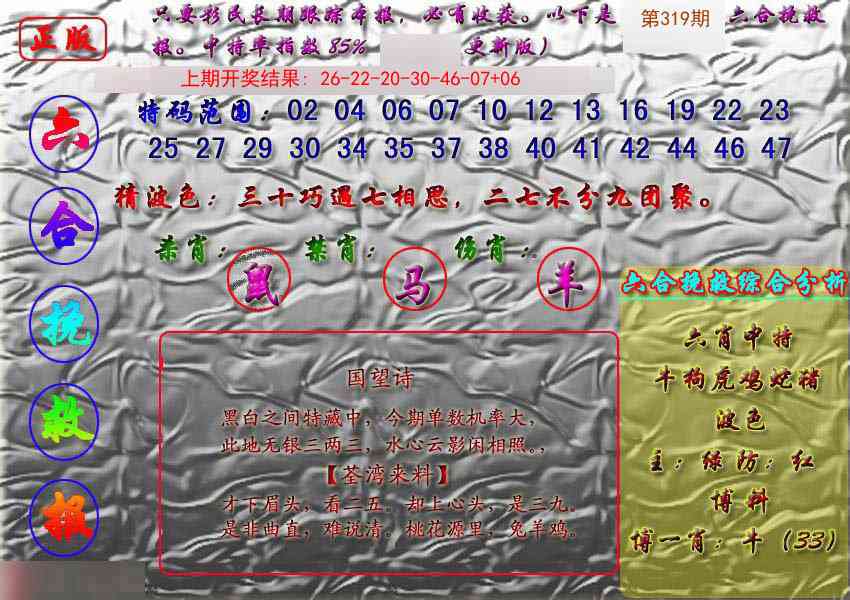 正版
只要彩民长期跟踪本报，必有收获。以下是 第319期 六合挽救
报。中特率指数85% 更新版）
上期开奖结果：26-22-20-30-46-07+06
特码范围：02 04 06 07 10 12 13 16 19 22 23
25 27 29 30 34 35 37 38 40 41 42 44 46 47
猜波色：三十巧遇七相思，二七不分九团聚。
杀肖：鼠 禁肖：马 伤肖：羊
六
合
挽
救
报
国望诗
黑白之间特藏中，今期单数机率大，
此地无银三两三，水心云影闲相照。，
【荃湾来料】
才下眉头，看二五。却上心头，是三九。
是非曲直，难说清。桃花源里，兔羊鸡。
六合挽救综合分析
六肖中特
牛狗虎鸡蛇猪
波色
主：绿防：红
博料
博一肖：牛（33）